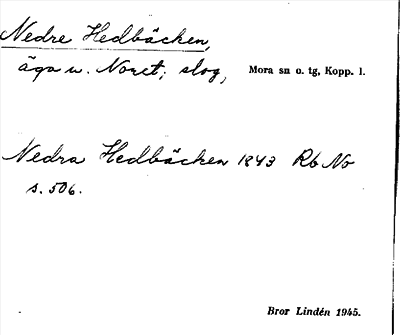 Nedre Hedbäcken,
äga u. Noret; slog, Mora sn o. tg, Kopp. l.
Nedra Hedbäcken 1843 Rb No
s. 506.
Bror Lindén 1945.